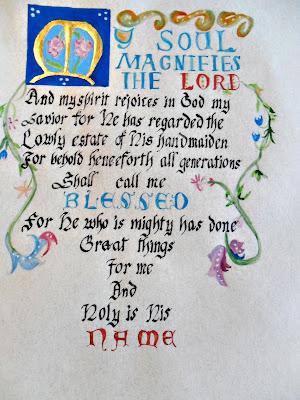 My SOUL
MAGNIFIES
THE LORD
And my spirit rejoices in God my
Savior for He has regarded the
Lowly estate of His handmaiden
For behold henceforth all generations
Shall call me
BLESSED
For He who is mighty has done
Great things
For me
And
Holy is His
NAME